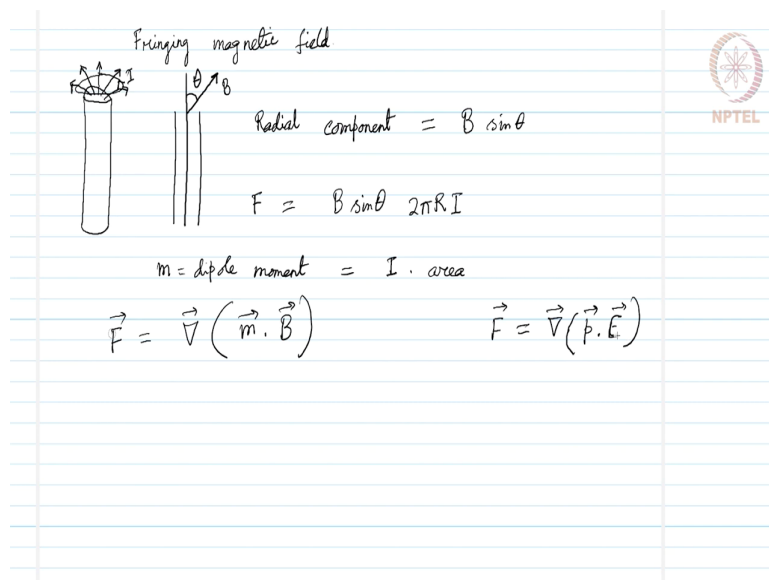 Fringing magnetic field
I
θ
B
NPTEL
Radial component = B sinθ
F = B sinθ 2πRI
m = dipole moment = I . area
F⃗ = ∇⃗ ( m⃗ . B⃗ )
F⃗ = ∇⃗ ( p⃗ . E⃗ )